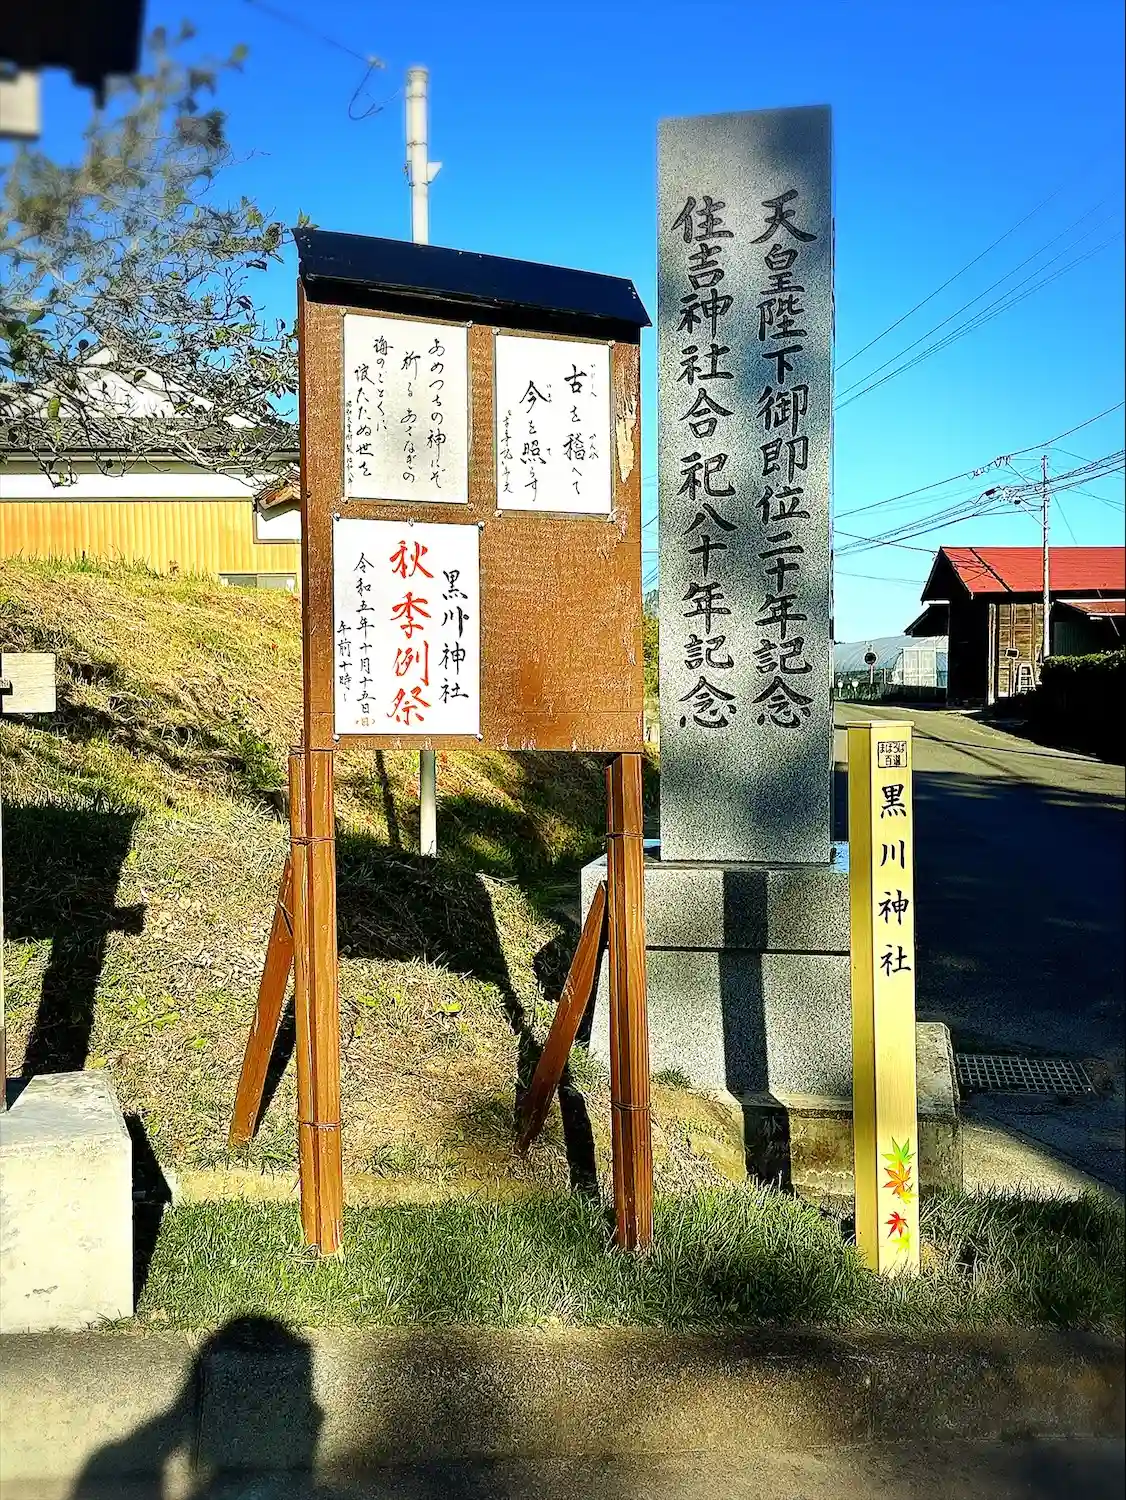 天皇陛下御即位二十年記念
住吉神社合祀八十年記念
古を稽へて
今を照らす
あめつちの神にぞ
祈るあさなぎの
海のごとくに
波たたぬ世を
黒川神社
秋季例祭
令和五年十月十五日(日)
午前十時〜
まほろば
百選
黒川神社